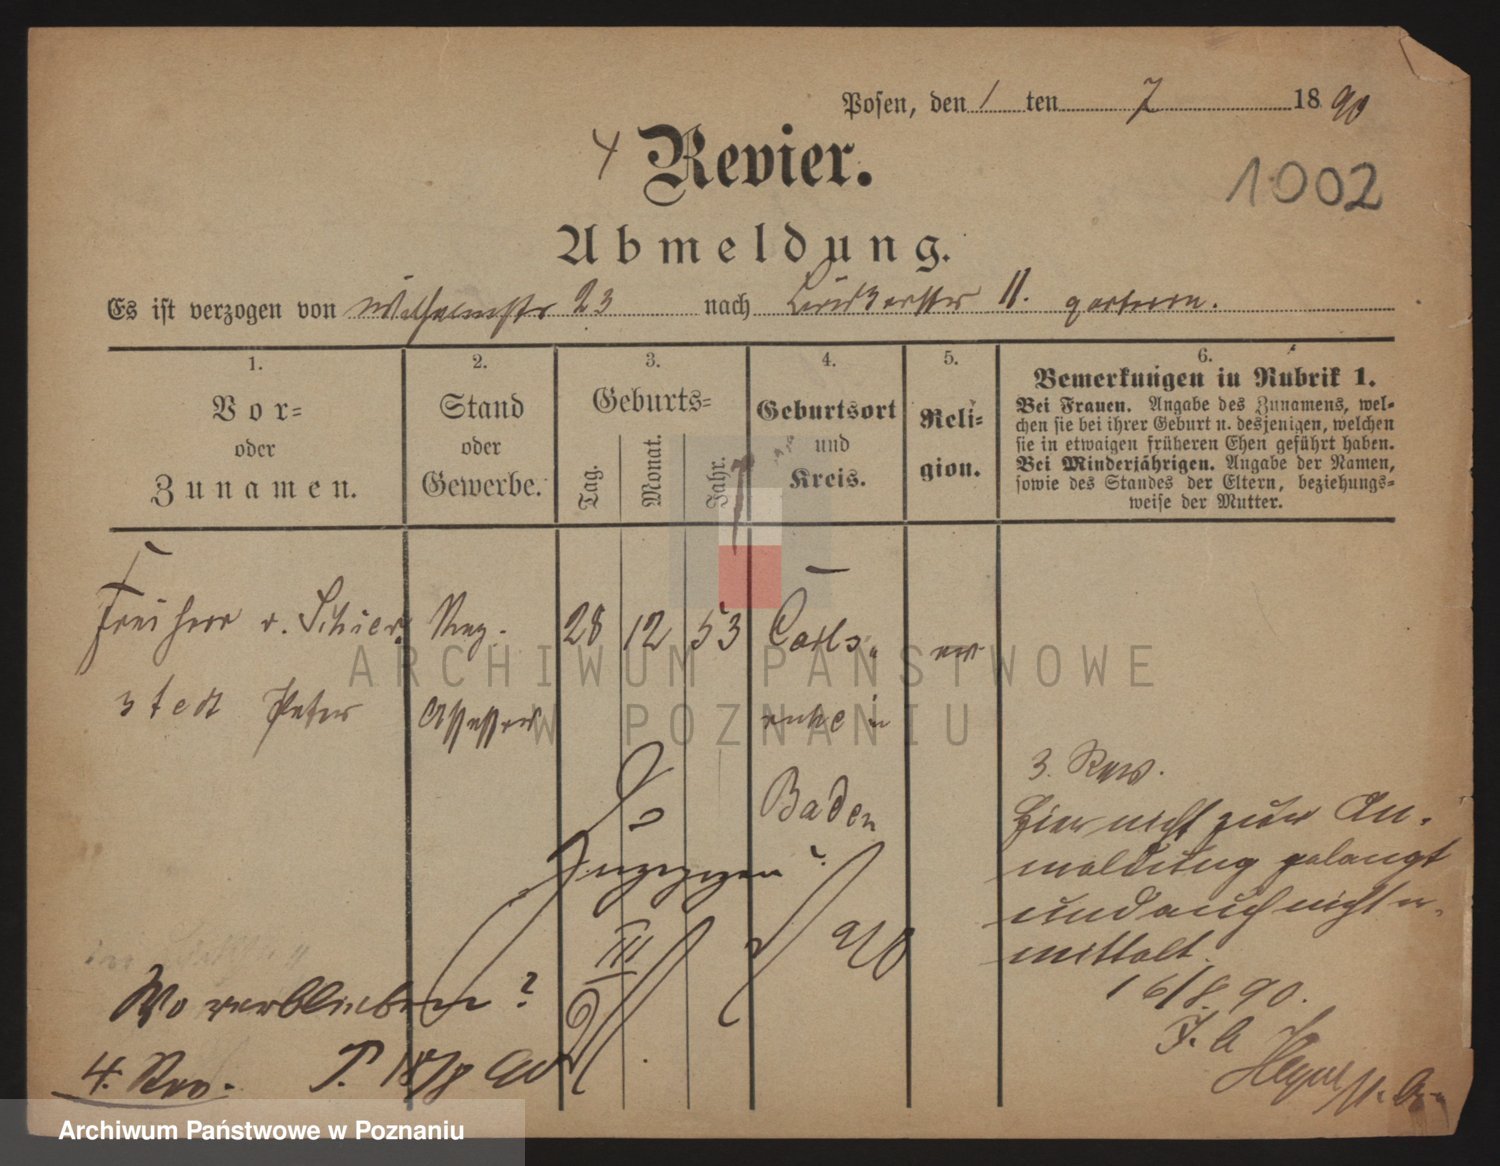 Posen, den 1 ten 7 1890
4 Revier.
1002
Abmeldung.
Es ist verzogen von Wilhelmstr 23 nach 11. gestern.
1.
Vor-
oder
Zunamen.
2.
Stand
oder
Gewerbe.
3.
Geburts-
Tag.
Monat.
Jahr.
4.
Geburtsort
und
Kreis.
5.
Reli-
gion.
6.
Bemerkungen in Rubrik 1.
Bei Frauen. Angabe des Zunamens, wel-
chen sie bei ihrer Geburt u. desjenigen, welchen
sie in etwaigen früheren Ehen geführt haben.
Bei Minderjährigen. Angabe der Namen,
sowie des Standes der Eltern, beziehungs-
weise der Mutter.
Freiherr v. Schier, Reg. 28 12 53 Carls- ev
stedt Peter Assessor ruhe in
Baden
3. Rev.
Hier nicht zur An-
meldung gelangt
und auch nicht er-
mittelt.
16/8. 90.
J. A
III
Wo verblieben?
4. Rev. P. 18/8 90
ARCHIWUM PAŃSTWOWE
W POZNANIU
Archiwum Państwowe w Poznaniu